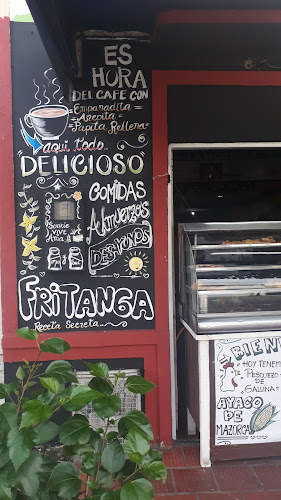 ES
HORA
DEL CAFE CON
Empanadita
Arepita
Papita Rellena
aqui todo
DELICIOSO
COMIDAS
ALMUERZOS
DESAYUNOS
Sonríe
VIVE
Ama
FRITANGA
Receta Secreta...
BIENV
HOY TENEM
PESCUEZO
DE
GALLINA
AYACO
PE
MAZORCA